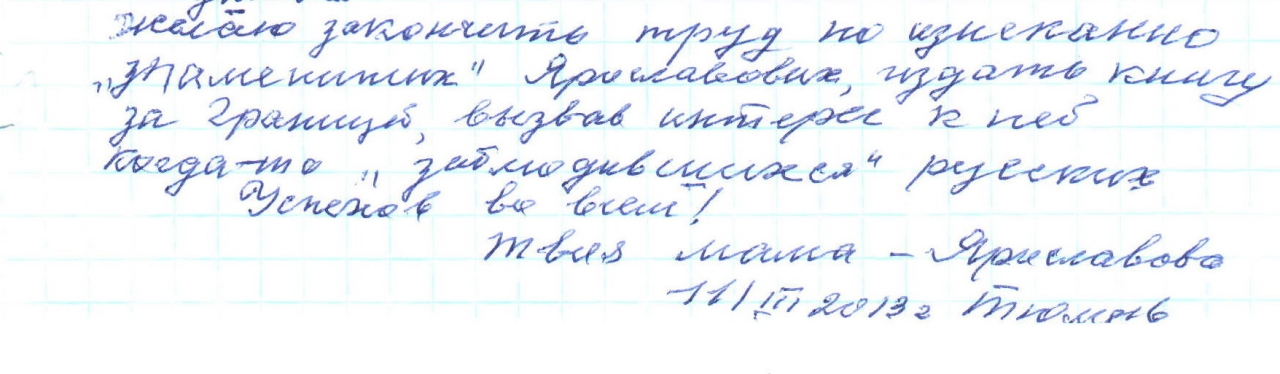 желаю закончить труд по изысканно
„знаменитых" Ярославовых, издать книгу
за границей, вызвав интерес к ней
когда-то „заблудившихся" русских
Успехов во всем!
Твоя мама – Ярославова
11/III 2013г Тюмень